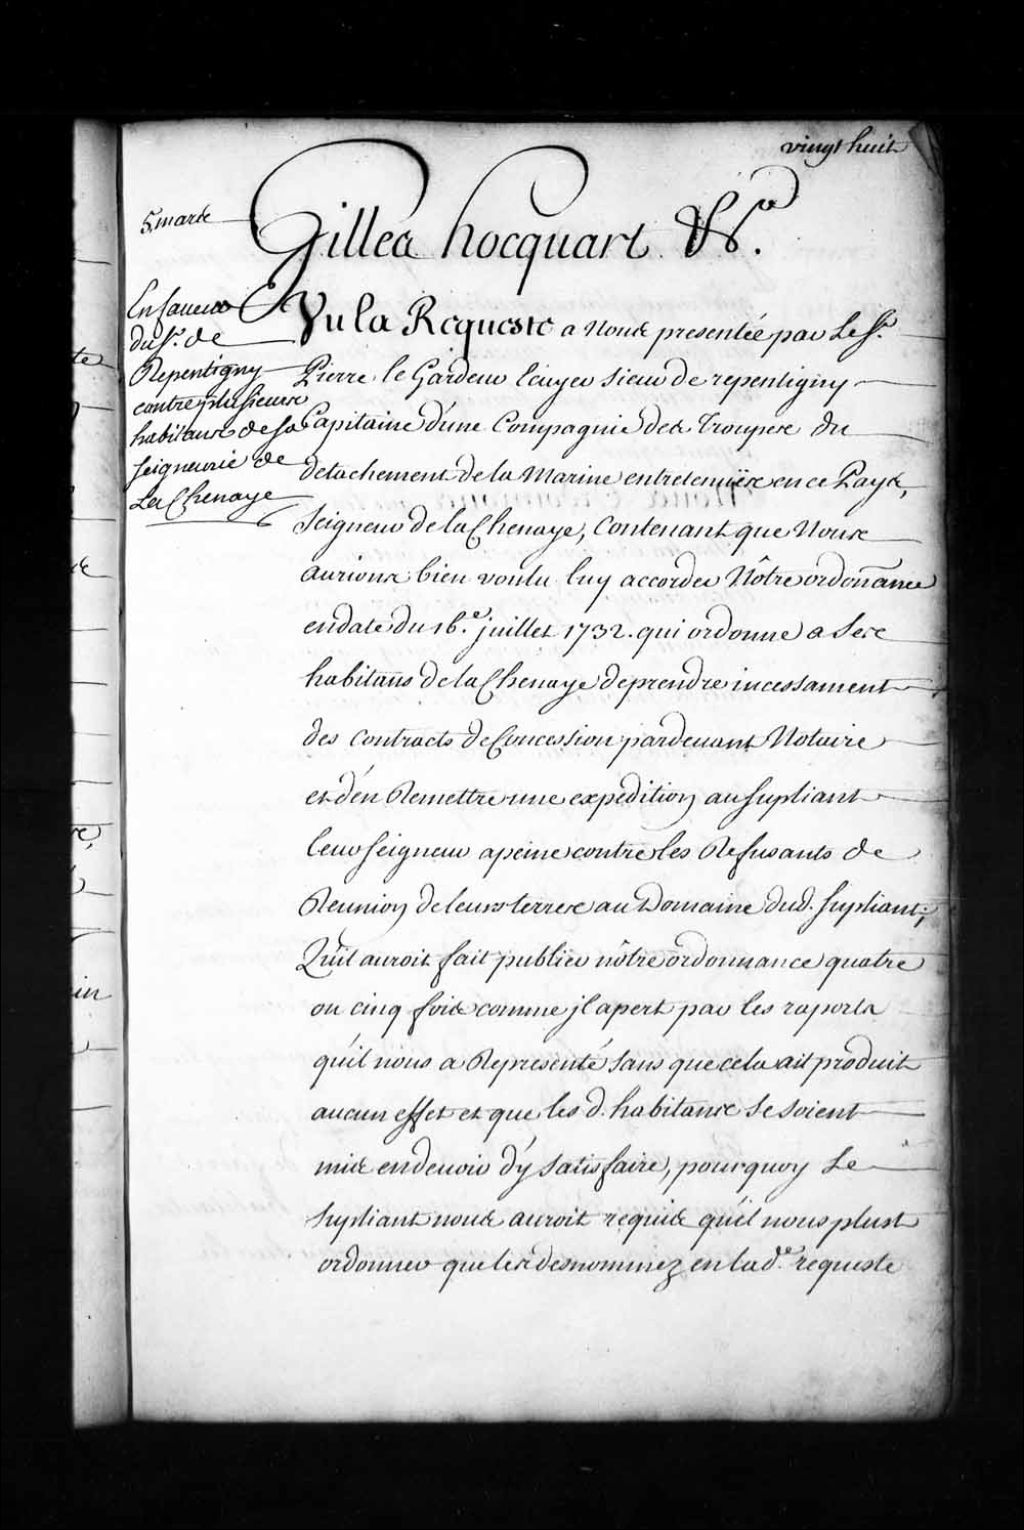 vingt huit
5. mars
Gilles hocquart &c.ª
En faveur
du Sr. de
Repentigny
contre plusieurs
habitans de sa
seigneurie de
La Chenaye
Vu la Requeste a Nous presentée par Le Sr.
Pierre le Gardeur Ecuyer sieur de repentigny
Capitaine d'une Compagnie des Troupes du
detachement de la Marine entretenües en ce Pays,
Seigneur de la Chenaye, Contenant que Nous
aurions bien voulu luy accorder Nôtre ordoñance
en date du 16.e juillet 1732. qui ordonne a Ses
habitañs de la Chenaye de prendre incessament
des Contracts de Concession pardevant Notaire
et d'en Remettre une expedition au Supliant
leur Seigneur a peine contre les Refusants de
Reunion de leurs terres au Domaine dud. Supliant;
Qu'il auroit fait publier nôtre ordonnance quatre
ou cinq fois comme jl apert par les raports
qu'il nous a Representé sans que cela ait produit
aucun effet et que les d. habitans se soient
mis en devoir d'y satisfaire, pourquoy Le
Supliant nous auroit requis qu'il nous plust
ordonner que les desnommez en lad.e requeste